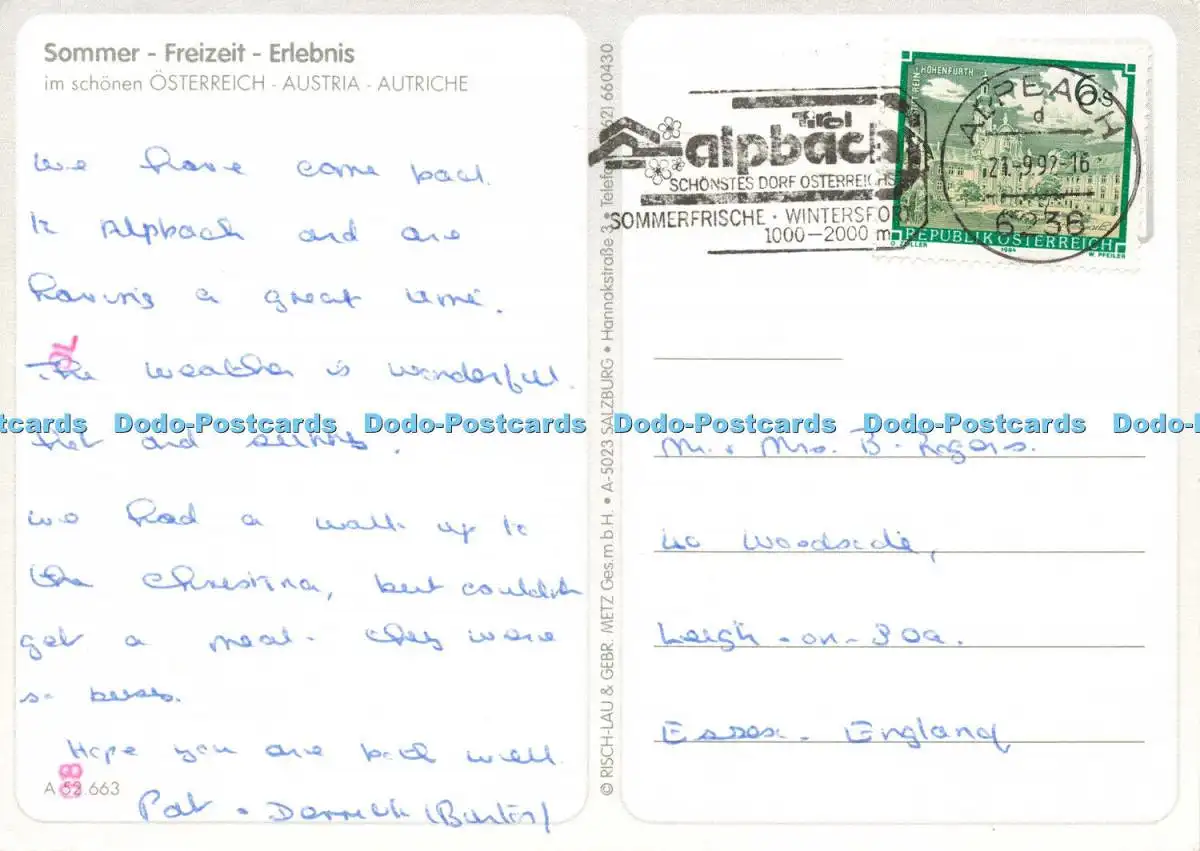 Sommer - Freizeit - Erlebnis
im schönen ÖSTERREICH - AUSTRIA - AUTRICHE
We have come back
to Alpbach and are
having a great time.
The weather is wonderful.
Hot and sunny.
We had a walk up to
the Christina, but couldn't
get a meal. They were
so busy.
Hope you are both well.
Pat . Derrick (Burton)
A 52.663
© RISCH-LAU & GEBR. METZ Ges.m.b.H. • A-5023 SALZBURG • Hannakstraße 3 • 660430
Tirol
alpbach
SCHÖNSTES DORF ÖSTERREICHS
SOMMERFRISCHE · WINTERSPORT
1000-2000 m
STIFT REIN-HOHENFURTH
6s
REPUBLIK ÖSTERREICH
1984
W. PFEILER
ALPBACH
d
21.-9.92-16
6236
Mr. & Mrs. B. Rogers.
Woodside,
Leigh-on-Sea.
Essex. England
Dodo-Postcards Dodo-Postcards Dodo-Postcards Dodo-Postcards